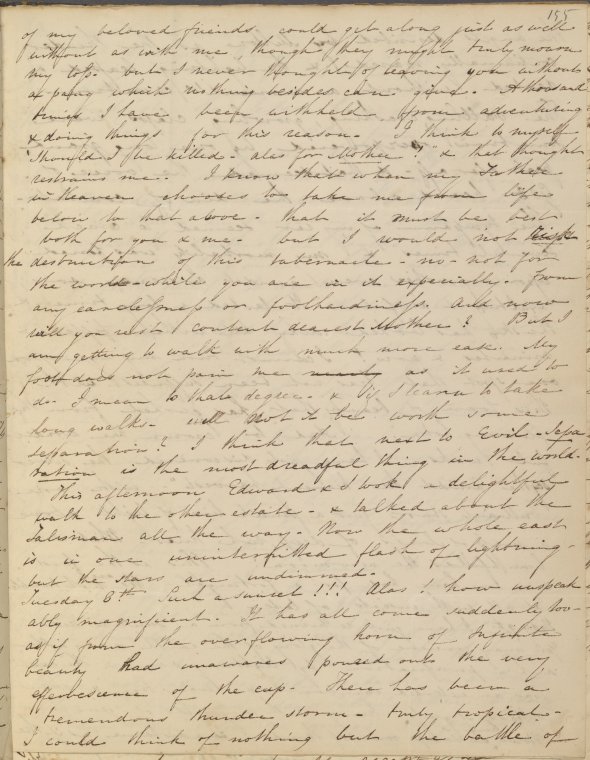 155
of my beloved friends could get along just as well
without as with me, though they might truly mourn
my loss. but I never thought of leaving you without
a pang which nothing besides can give. A thousand
times I have been withheld from adventuring
& doing things for this reason. I think to myself
"Should I be killed - alas for Mother!" & that thought
restrains me. I know that when my Father
in Heaven chooses to take me from life
below to that above - that it must be best
both for you & me - but I would not risk
the destruction of this tabernacle - no - not for
the world - while you are in it especially. From
any carelessness or foolhardiness. And now
will you rest content dearest Mother? But I
am getting to walk with much more ease. My
foot does not pain me nearly as it used to
do. I mean to that degree. & if I learn to take
long walks - will not it be worth some
separation? I think that next to Evil - Sepa
ration is the most dreadful thing in the world.
This afternoon Edward & I took a delightful
walk to the other estate - & talked about the
Talisman all the way. Now the whole east
is in one uninterrupted flash of lightning -
but the stars are undimmed.
Tuesday 6th Such a sunset!!! Alas! how unspeak
ably magnificent. It has all come suddenly too -
as if from the overflowing horn of Infinite
beauty had unawares poured out the very
effervescence of the cup. There has been a
tremendous thunder storm - truly tropical -
I could think of nothing but the battle of